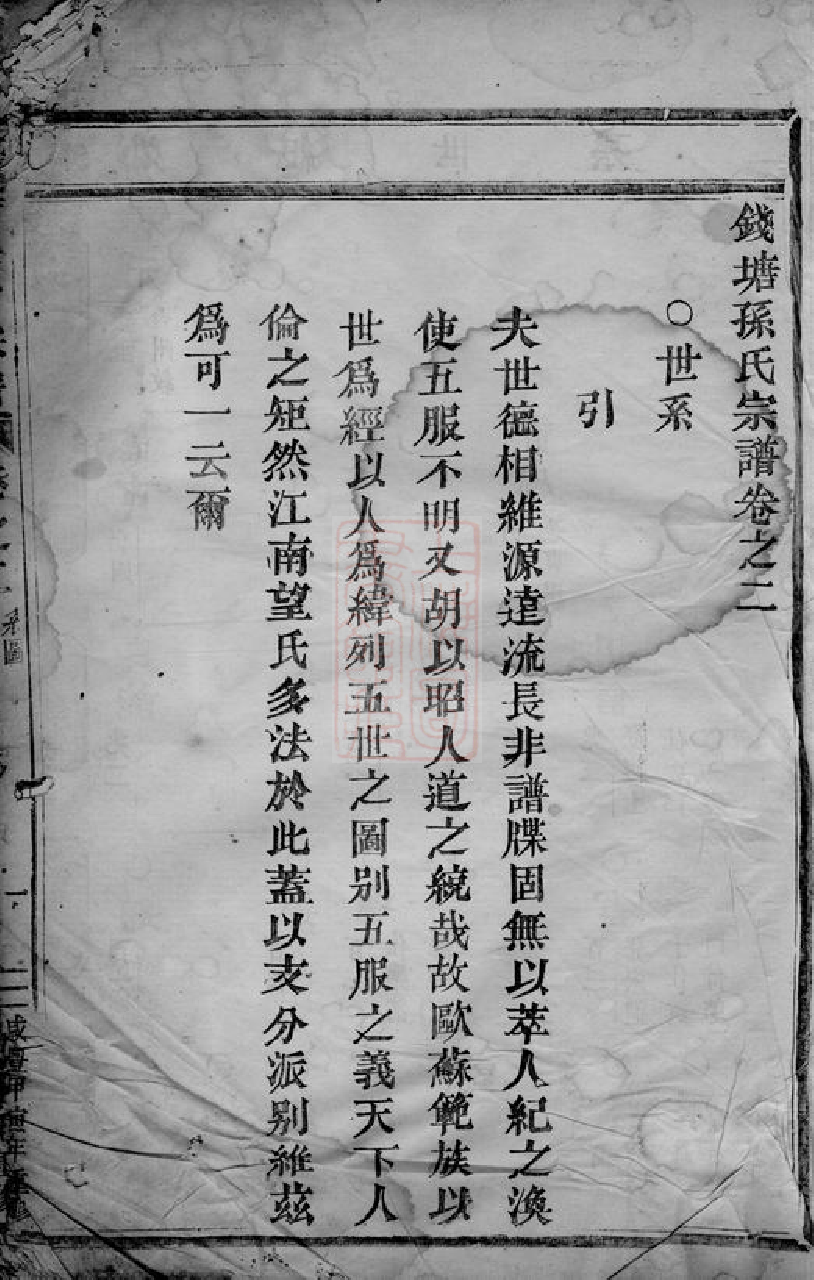 錢塘孫氏宗譜卷之二
○世系
引
夫世德相維源逹流長非譜牒固無以萃人紀之渙
使五服不明又胡以昭人道之統哉故歐蘇範族以
世爲經以人爲緯列五世之圖别五服之義天下人
倫之矩然江南望氏多法於此蓋以支分派别維茲
爲可一云爾
系圖
一
咸豊甲寅年